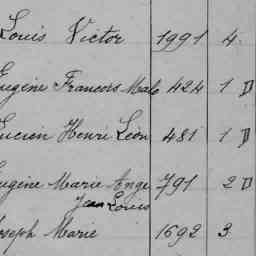 Louis Victor 1991 4
Eugène François Malo 424 1 D
Lucien Henri Léon 481 1 D
Eugène Marie Ange 791 2 D
Jean Louis
Joseph Marie 1692 3